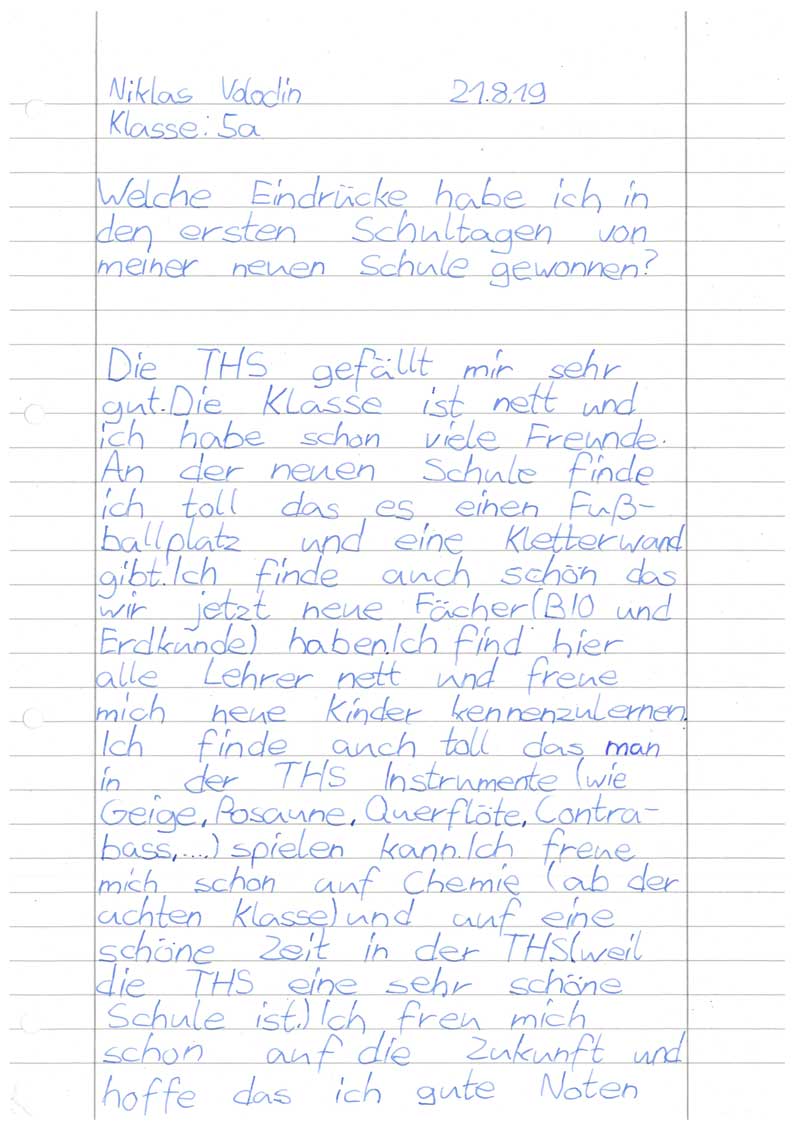 Niklas Volodin 21.8.19
Klasse: 5a
Welche Eindrücke habe ich in
den ersten Schultagen von
meiner neuen Schule gewonnen?
Die THS gefällt mir sehr
gut. Die Klasse ist nett und
ich habe schon viele Freunde.
An der neuen Schule finde
ich toll das es einen Fuß-
ballplatz und eine Kletterwand
gibt. Ich finde auch schön das
wir jetzt neue Fächer (BIO und
Erdkunde) haben. Ich find hier
alle Lehrer nett und freue
mich neue Kinder kennenzulernen.
Ich finde auch toll das man
in der THS Instrumente (wie
Geige, Posaune, Querflöte, Contra-
bass,....) spielen kann. Ich freue
mich schon auf Chemie (ab der
achten Klasse) und auf eine
schöne Zeit in der THS (weil
die THS eine sehr schöne
Schule ist.) Ich freu mich
schon auf die Zukunft und
hoffe das ich gute Noten